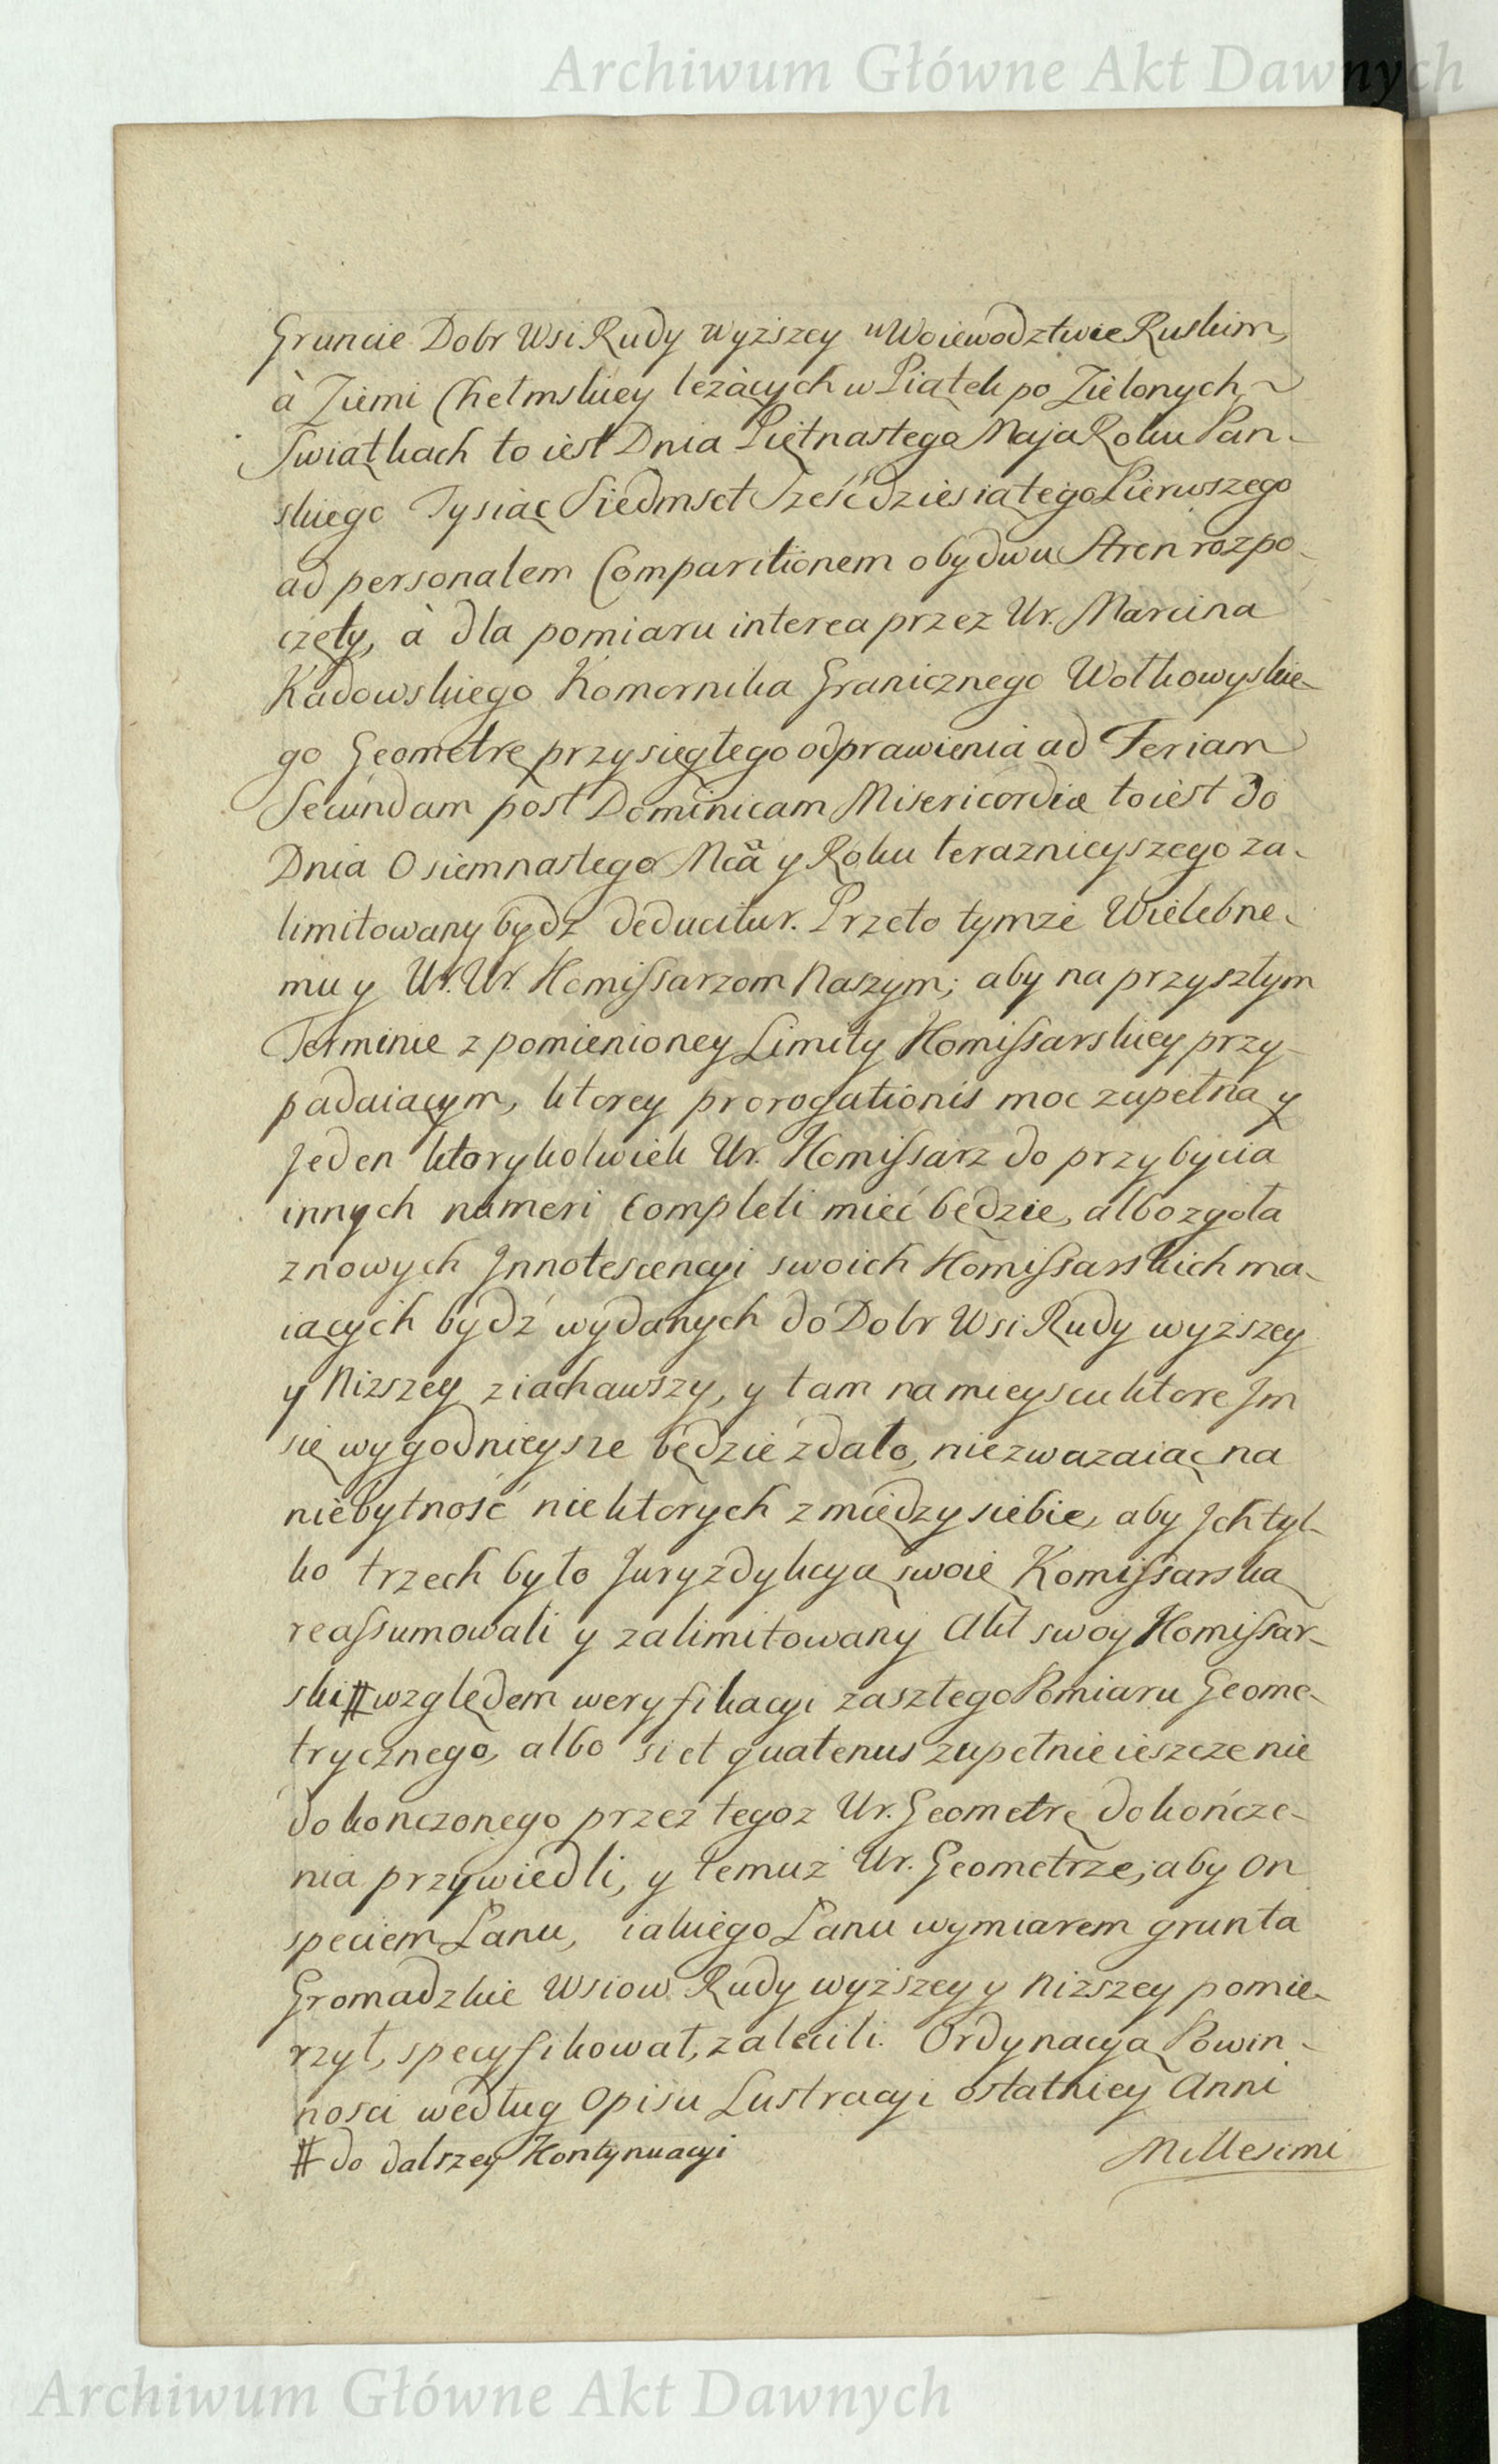 Archiwum Główne Akt Dawnych
Gruncie Dobr Wsi Rudy wyższey w Woiewodztwie Ruskim,
à Ziemi Chełmskiey leżących w Piątek po Zielonych
Swiątkach to iest Dnia Piętnastego Maja Roku Pan-
skiego Tysiąc Siedmset Sześćdziesiątego Pierwszego
ad personalem Comparitionem obydwu Stron rozpo-
częty, à dla pomiaru interea przez Ur. Marcina
Kadowskiego Komornika Granicznego Wołkowyskie-
go Geometrę przysięgłego odprawienia ad Feriam
Secundam post Dominicam Misericordiæ to iest do
Dnia Osiemnastego Mcã y Roku teraznieyszego za-
limitowany bydz deducitur. Przeto tymże Wielebne-
mu y Ur. Ur. Komissarzom Naszym; aby na przyszłym
Terminie z pomienioney Limity Komissarskiey przy-
padaiącym, ktorey prorogationis moc zupełną y
Jeden ktorykolwiek Ur. Komissarz do przybycia
innych numeri completi mieć będzie, albo zgoła
znowych Innotescencyi swoich Komissarskich ma-
iących bydź wydanych do Dobr Wsi Rudy wyższey
y Niższey ziachawszy, y tam na mieyscu ktore Im
się wygodnieysze będzie zdało, niezważaiąc na
niebytność niektorych z między siebie, aby Ich tyl-
ko trzech było Juryzdykcyą swoię Komissarską
reassumowali y zalimitowany Akt swoy Komissar-
ski # względem weryfikacyi zaszłego Pomiaru Geome-
trycznego, albo si et quatenus zupełnie ieszcze nie
dokonczonego przez tegoż Ur. Geometrę dokończe-
nia przywiedli, y temuż Ur. Geometrze, aby on
speciem Łanu, iakiego Łanu wymiarem grunta
Gromadzkie Wsiow Rudy wyższey y Niższey pomie-
rzył, specyfikował, zalecili. Ordynacyą Powin-
nosci według Opisu Lustracyi ostatniey Anni
# do dalszey Kontynuacyi
Millesimi
Archiwum Główne Akt Dawnych